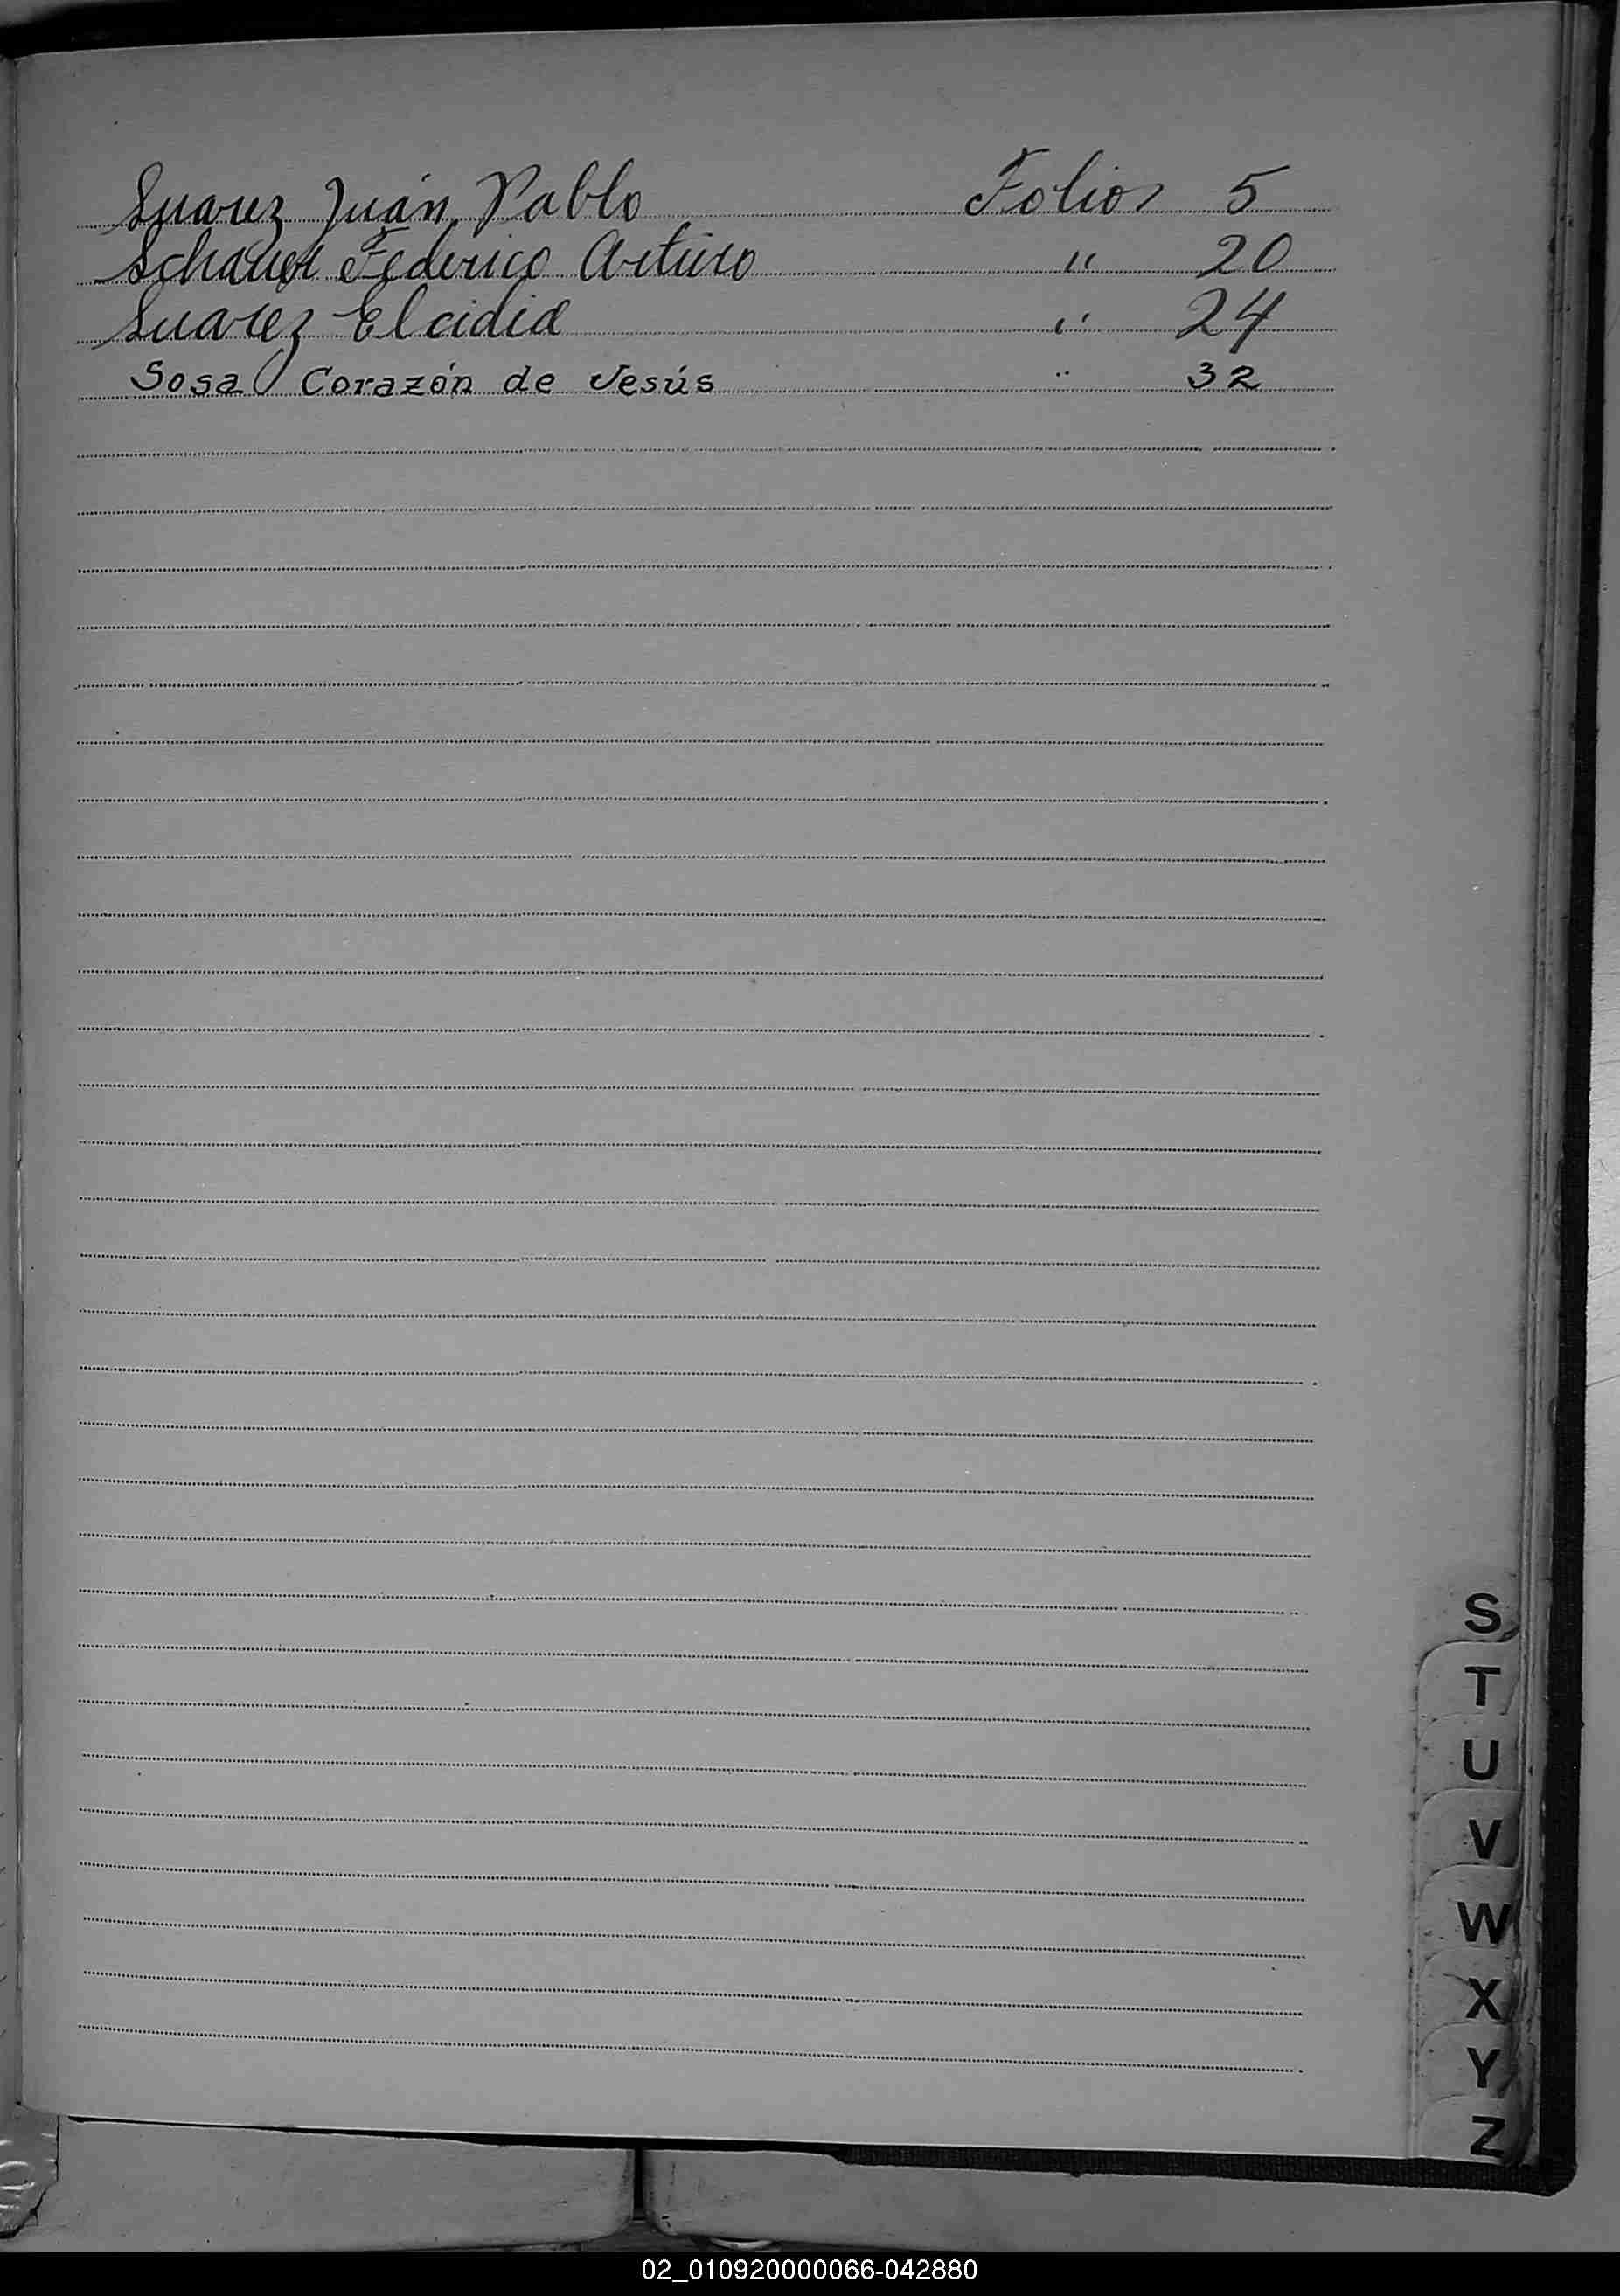 Suarez Juán Pablo Folios 5
Schauer Federico Arturo " 20
Suarez Elcidia " 24
Sosa Corazón de Jesús " 32
S
T
U
V
W
X
Y
Z
02_010920000066-042880